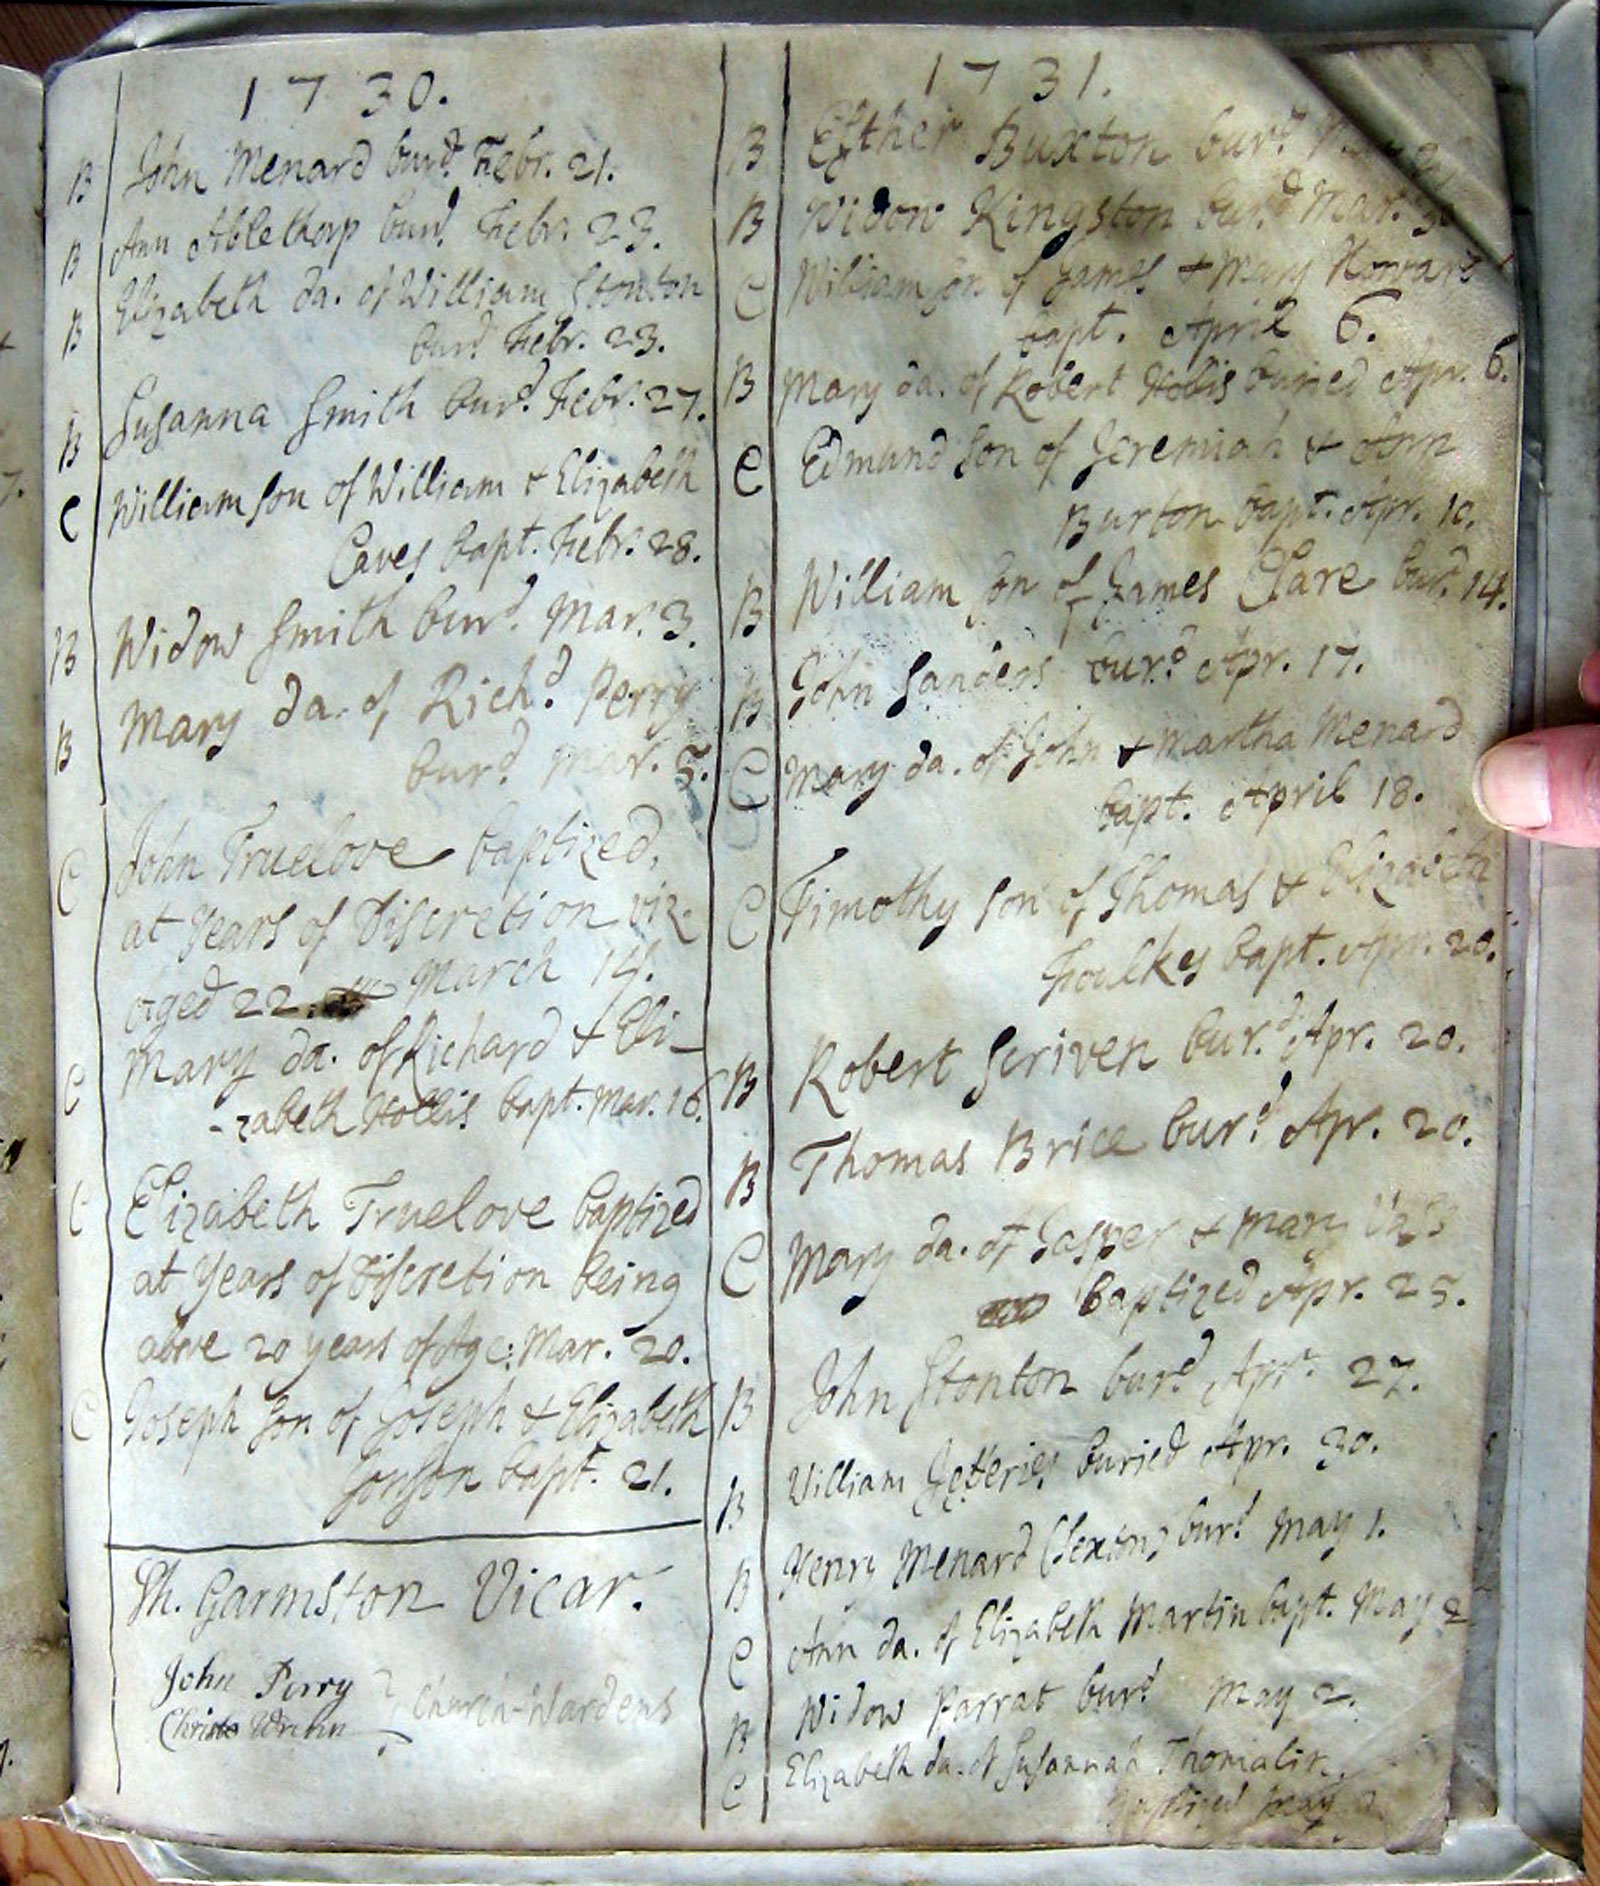 1730.
B John Menard bur.d Febr. 21.
B Ann Ablethorp bur.d Febr. 23.
B Elizabeth da. of William Stonton
bur.d Febr. 23.
B Susanna Smith bur.d Febr. 27.
C William son of William & Elizabeth
Eaves bapt. Febr. 28.
B Widow Smith bur.d Mar. 3.
B Mary da. of Rich.d Perry
bur.d Mar. 5.
C John Truelove baptized,
at years of Discretion viz.
aged 22: March 14.
C Mary da. of Richard & Eli-
-zabeth Hollis bapt. Mar. 16.
C Elizabeth Truelove baptized
at years of Discretion being
above 20 years of Age: Mar. 20.
C Joseph son of Joseph & Elizabeth
Jonson bapt. 21.
Th. Garmston Vicar.
John Perry
Church-Wardens
1731.
B Esther Buxton bur.d
B Widow Kingston bur.d Mar. 30
C William son of James & Mary
bapt. April 6.
B Mary da. of Robert Hollis buried Apr. 6.
C Edmund son of Jeremiah & Ann
Burton bapt. Apr. 10.
B William son of James Clare bur.d 14.
B John Sanders bur.d Apr. 17.
C Mary da. of John & Martha Menard
bapt. April 18.
C Timothy son of Thomas & Elizabeth
Foulkes bapt. Apr. 20.
B Robert Scriven bur.d Apr. 20.
B Thomas Brice bur.d Apr. 20.
C Mary da. of Jasper & Mary
baptized Apr. 25.
B John Stonton bur.d Apr. 27.
B William Jefferies buried Apr. 30.
B Henry Menard (Sexton) bur.d May 1.
C Ann da. of Elizabeth Martin bapt. May 2
B Widow Parrat bur.d May 2.
C Elizabeth da. of Susannah
baptized May